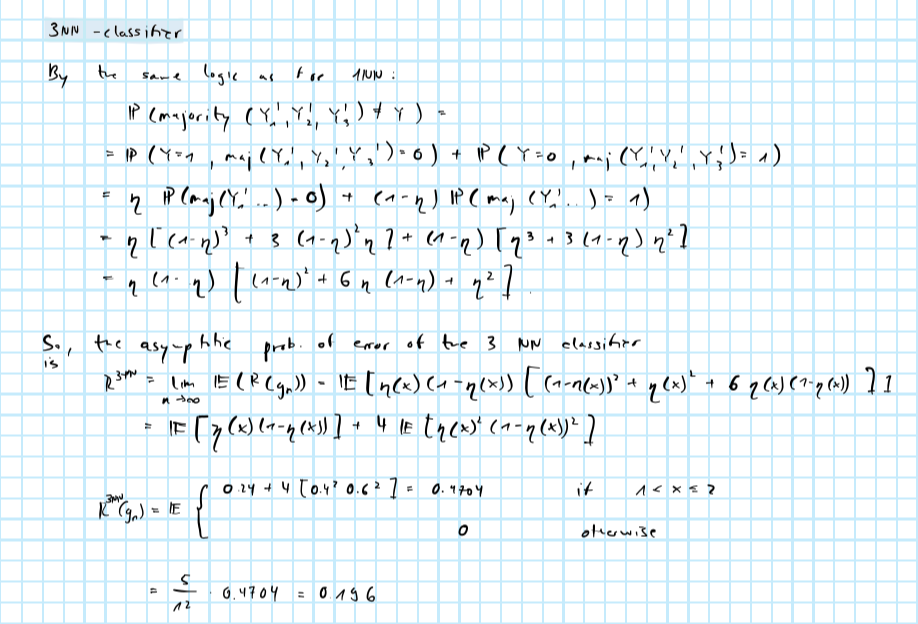 3NN - classifier
By the same logic as for 1NN :
ℙ (majority (Y₁', Y₂', Y₃') ≠ Y) =
= ℙ (Y=1 , maj (Y₁', Y₂', Y₃') = 0) + ℙ (Y=0 , maj (Y₁', Y₂', Y₃') = 1)
= η ℙ (maj (Y₁' ..) = 0) + (1-η) ℙ (maj (Y₁' ..) = 1)
= η [(1-η)³ + 3 (1-η)² η] + (1-η) [η³ + 3 (1-η) η²]
= η (1-η) [(1-η)² + 6 η (1-η) + η²].
So, the asymptotic prob. of error of the 3 NN classifier
is
R³ᴺᴺ = lim n→∞ 𝔼 (R(gₙ)) = 𝔼 [η(x) (1-η(x)) [(1-η(x))² + η(x)² + 6 η(x) (1-η(x)) ] ]
= 𝔼 [η(x) (1-η(x))] + 4 𝔼 [η(x)² (1-η(x))²]
R³ᴺᴺ(gₙ) = 𝔼 { 0.24 + 4 [0.4² 0.6²] = 0.4704 if 1 < x ≤ 2
0 otherwise
= 5/12 · 0.4704 = 0.196